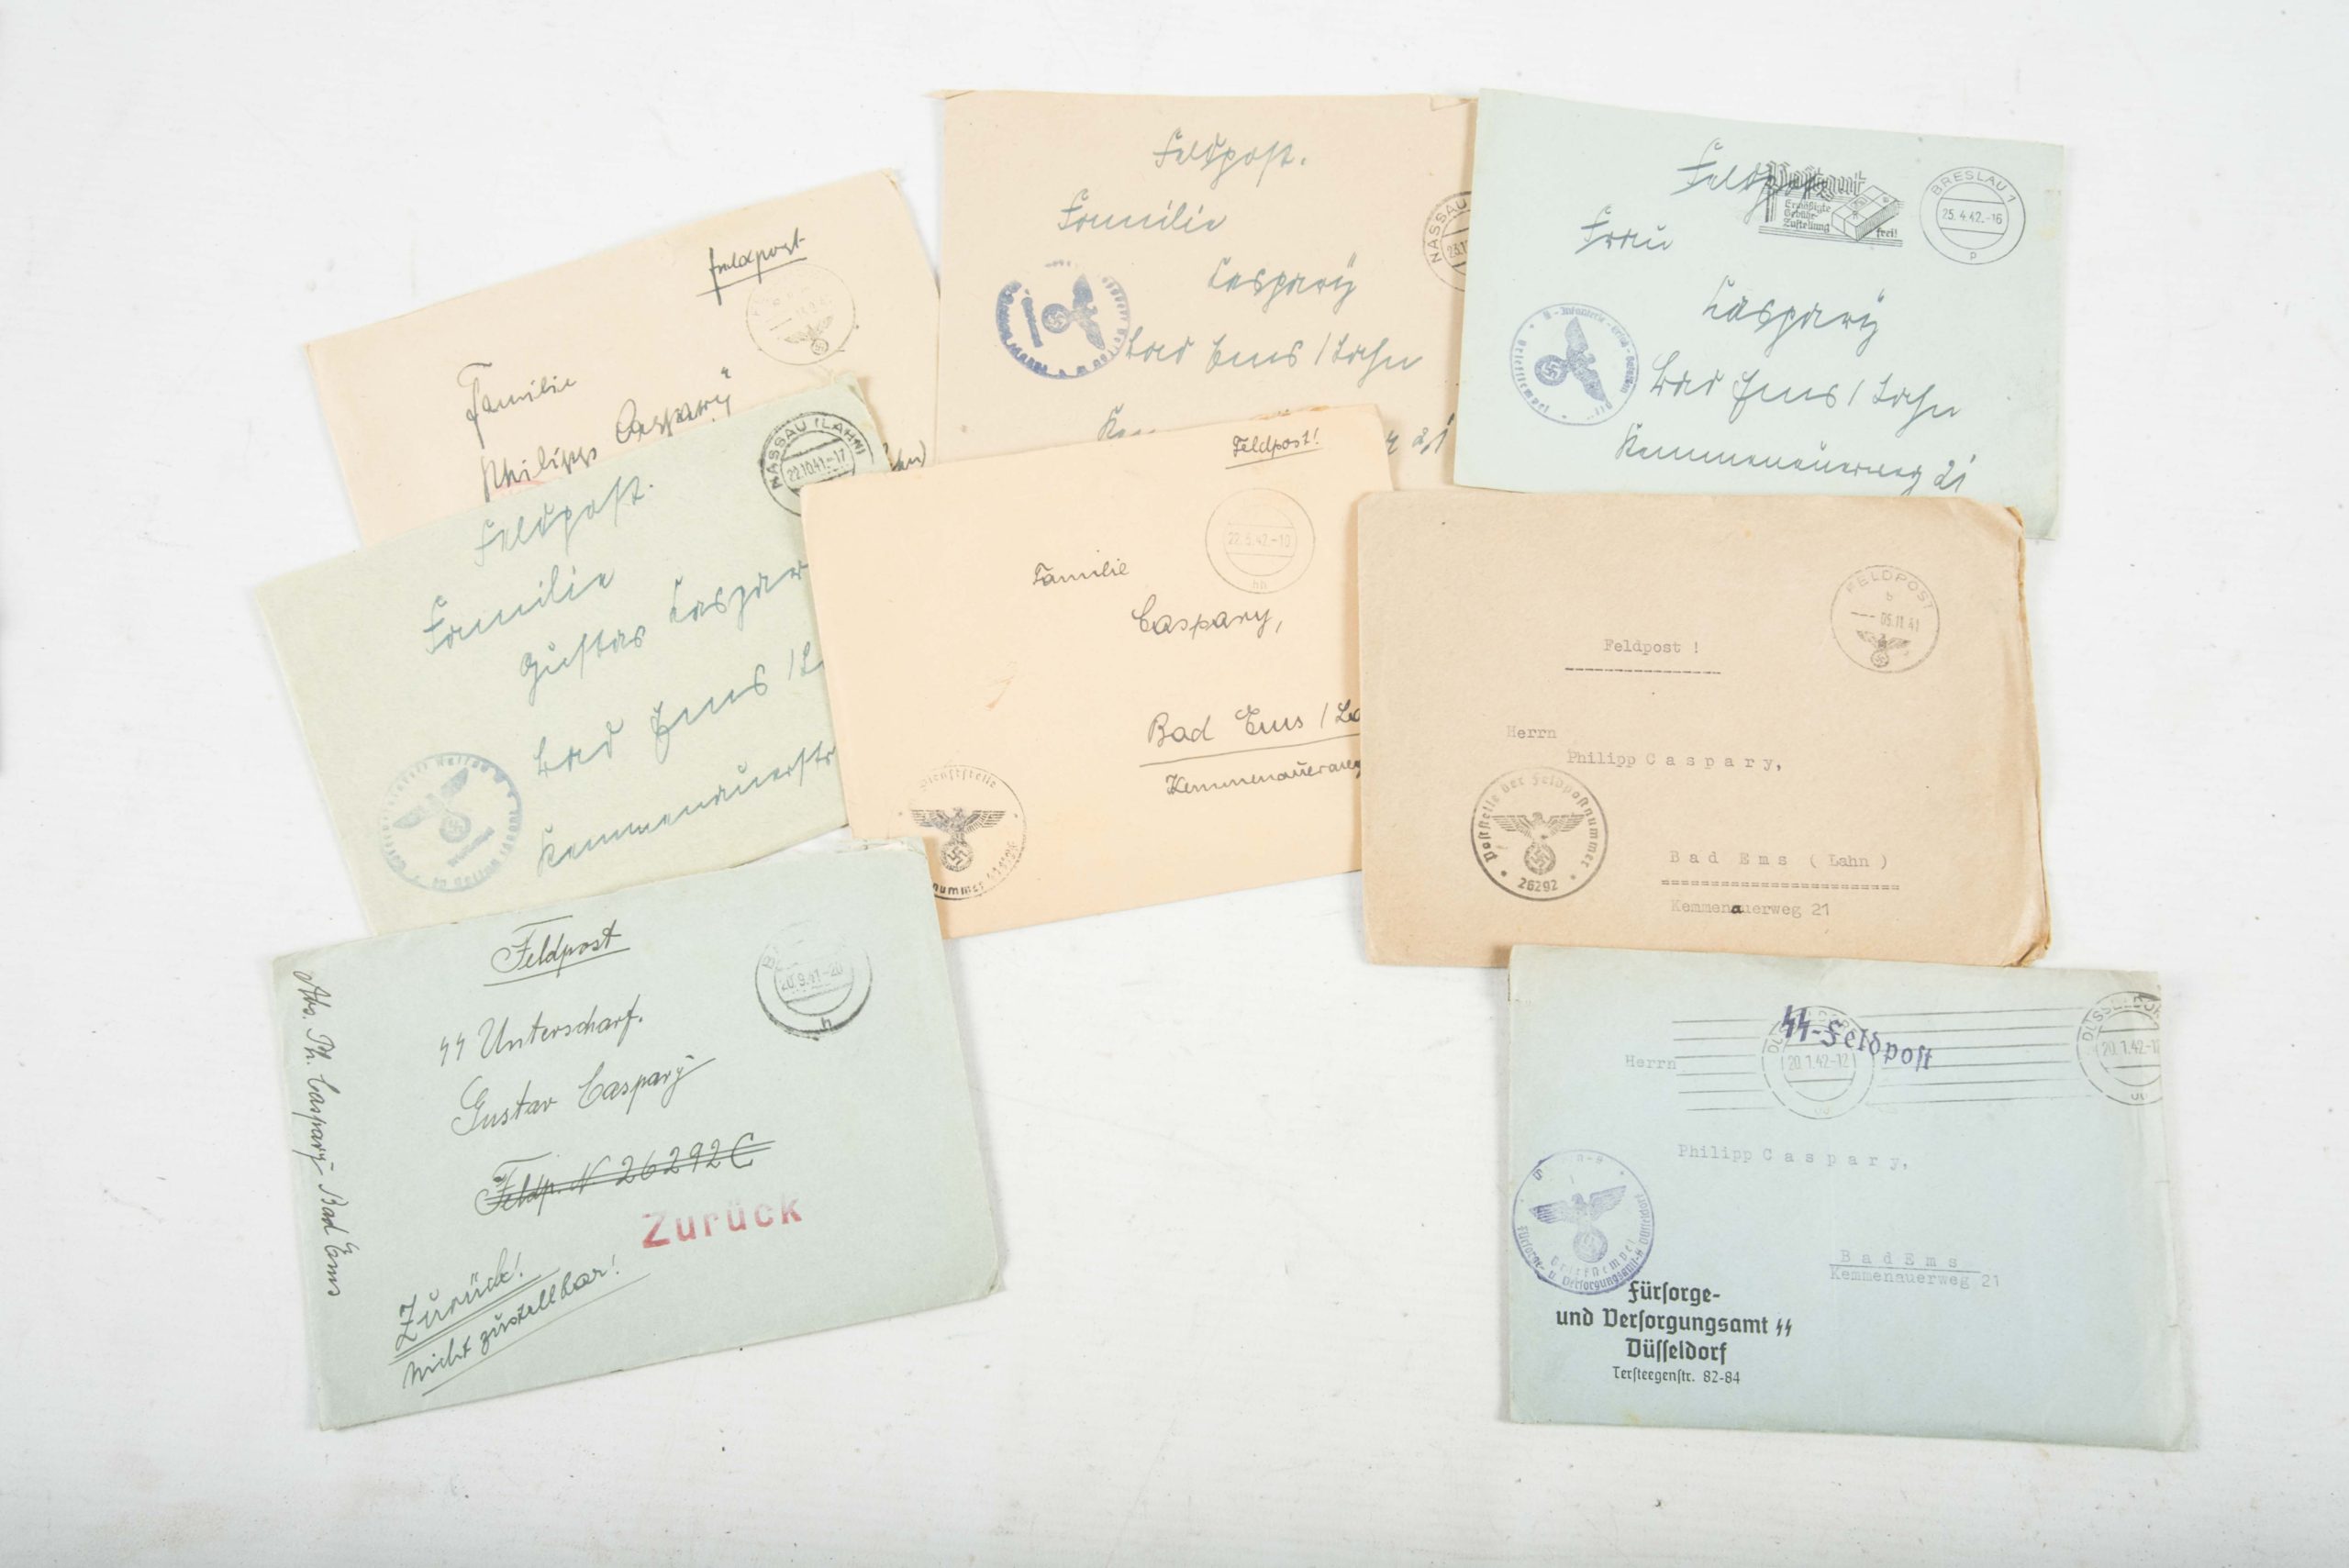 Feldpost
Familie
Philipp Caspary
Feldpost.
Familie
Caspary
Bad Ems / Lahn
21
NASSAU
Feldpost
Ermäßigte
Gebühr
Zustellung
frei!
BRESLAU 1
25.4.42.-16
p
Frau
Caspary
Bad Ems / Lahn
Kemmenauerweg 21
NASSAU (LAHN)
22.10.41.-17
Feldpost.
Familie
Gustav Caspar
Bad Ems / L
Kemmenauerstr
Feldpost!
22.5.42.-10
hh
Familie
Caspary,
Bad Ems / La
Kemmenauerweg
Dienststelle
nummer
FELDPOST
b
--- 05.11.41
Feldpost !
Herrn
Philipp Caspary,
Poststelle der Feldpostnummer
26292
Bad Ems (Lahn)
Kemmenauerweg 21
Feldpost
20.9.41-20
h
ᛋᛋ Unterscharf.
Gustav Caspary
Feldp. N 26292C
Zurück
Zurück!
nicht zustellbar!
Abs. Ph. Caspary Bad Ems
ᛋᛋ-Feldpost
20.1.42-12
DÜSSELDOR
20.1.42-12
Herrn
Philipp Caspary,
Briefstempel
Fürsorge- u. Versorgungsamt-ᛋᛋ Düsseldorf
Bad Ems
Kemmenauerweg 21
Fürsorge-
und Versorgungsamt ᛋᛋ
Düsseldorf
Tersteegenstr. 82-84